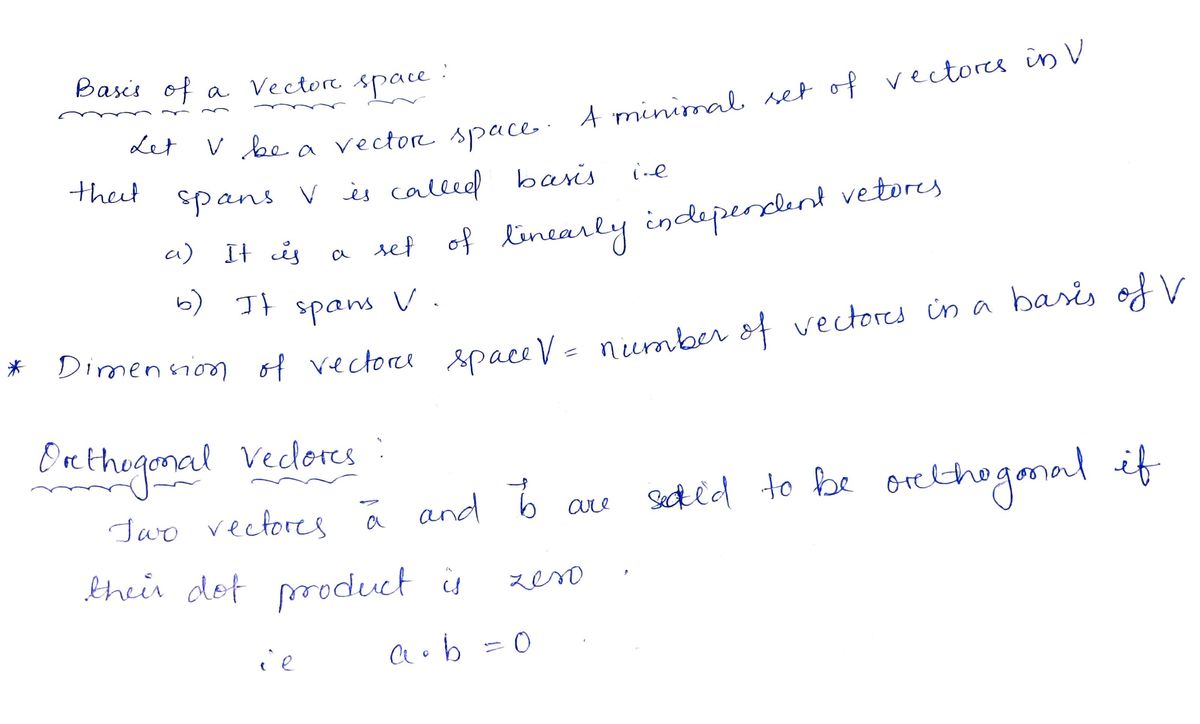 Basis of a Vector space :
Let V be a vector space. A minimal set of vectors in V
that spans V is called basis i.e
a) It is a set of linearly independent vetors
b) It spans V.
* Dimension of vector space V = number of vectors in a basis of V
Orthogonal Vectors :
Two vectors a⃗ and b⃗ are said to be orthogonal if
their dot product is zero .
ie a.b = 0